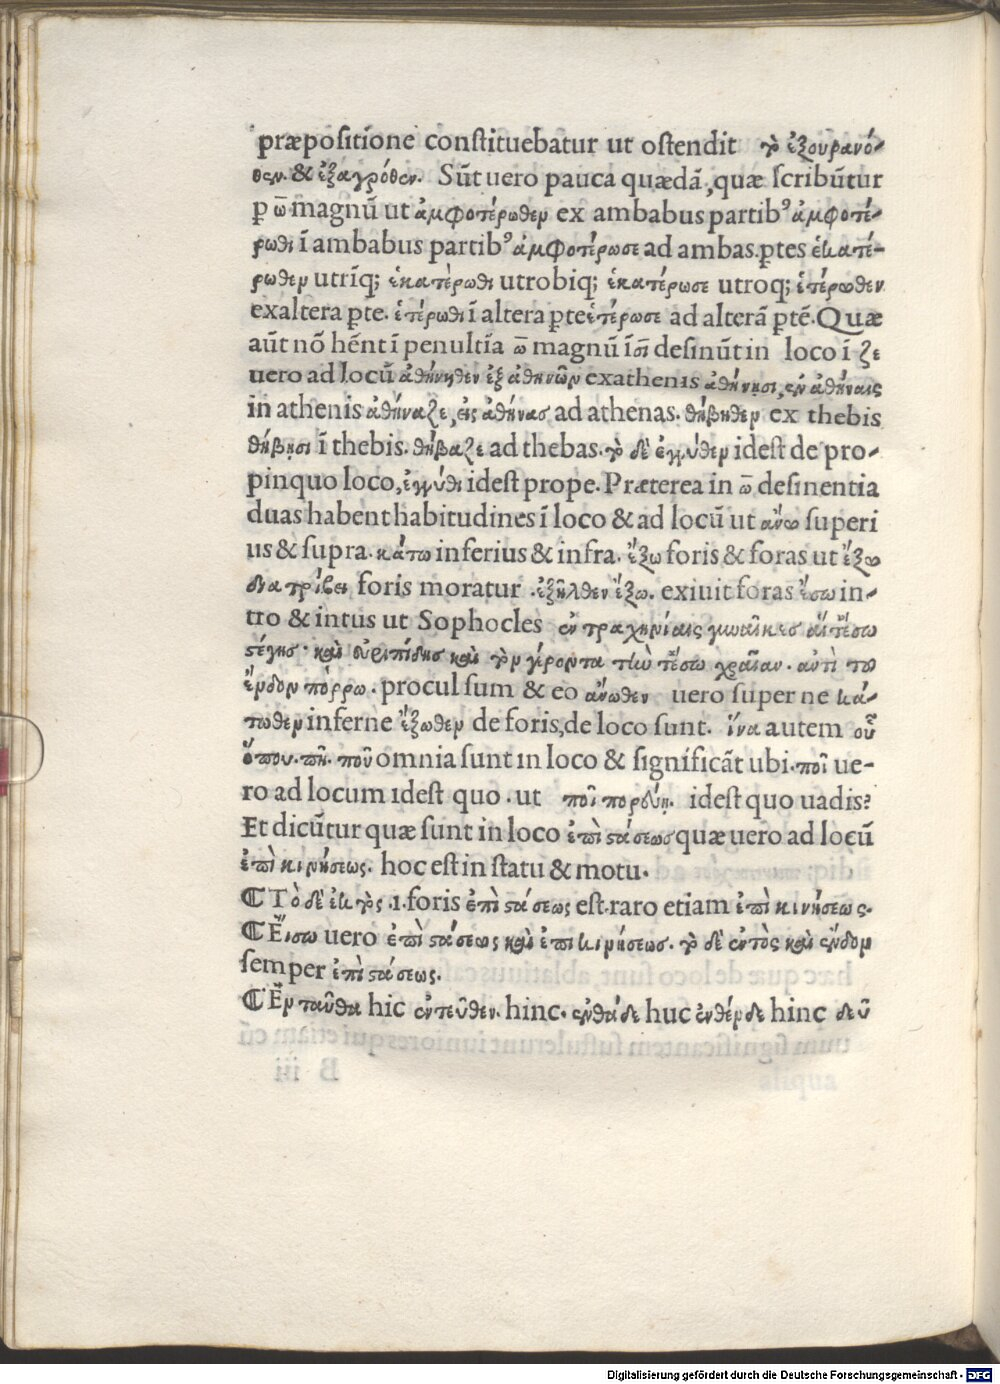 præpositione constituebatur ut ostendit τὸ ἐξουρανό-
θεν. & ἐξαγρόθεν. Sūt uero pauca quædā, quæ scribūtur
ꝑ ω̄ magnū ut ἀμφοτέρωθεν ex ambabus partibꝰ ἀμφοτέ-
ρωθι ī ambabus partibꝰ ἀμφοτέρωσε ad ambas ꝑtes ἑκατέ-
ρωθεν utrīq; ἑκατέρωθι utrobiq; ἑκατέρωσε utroq; ἑτέρωθεν
exaltera ꝑte. ἑτέρωθι ī altera ꝑte ἑτέρωσε ad alterā ꝑtē. Quæ
aūt nō hēnt ī penultīa ω̄ magnū ī σι desinūt in loco ī ζε
uero ad locū ἀθήνηθεν ἐξ ἀθηνῶν exathenis ἀθήνησι, ἐν ἀθήναις
in athenis ἀθήναζε, εἰς ἀθήνας ad athenas. θήβηθεν ex thebis
θήβησι ī thebis. θήβαζε ad thebas. τὸ δὲ ἐγγύθεν idest de pro-
pinquo loco, ἐγγύθι idest prope. Præterea in ω̄ desinentia
duas habent habitudines ī loco & ad locū ut ἄνω superi
us & supra. κάτω inferius & infra. ἔξω foris & foras ut ἔξω
διατρίβει foris moratur . ἐξῆλθεν ἔξω. exiuit foras ἔσω in-
tro & intus ut Sophocles ἐν τραχηνίαις γυναῖκες αἵ τ' ἔσω
στέγης. καὶ εὐριπίδης καὶ τὸν γέροντα τήν τ' ἔσω γραῖαν. αὐτὶ τοῦ
ἔνδον πόρρω. procul sum & eo ἄνωθεν uero super ne κά-
τωθεν inferne ἔξωθεν de foris, de loco sunt. ἵνα autem οὗ
ὅπου. πῆ. ποῦ omnia sunt in loco & significāt ubi. ποῖ ue-
ro ad locum idest quo . ut ποῖ πορεύῃ. idest quo uadis?
Et dicūtur quæ sunt in loco ἐπὶ στάσεως quæ uero ad locū
ἐπὶ κινήσεως. hoc est in statu & motu.
¶ Τὸ δὲ ἐκτὸς .i. foris ἐπὶ στάσεως est. raro etiam ἐπὶ κινήσεως.
¶ Εἴσω uero ἐπὶ στάσεως καὶ ἐπὶ κινήσεως. τὸ δὲ ἐντὸς καὶ ἔνδον
semper ἐπὶ στάσεως.
¶ Ἐνταῦθα hic ἐντεῦθεν. hinc. ἐνθάδε huc ἐνθένδε hinc δεῦ
Digitalisierung gefördert durch die Deutsche Forschungsgemeinschaft - DFG